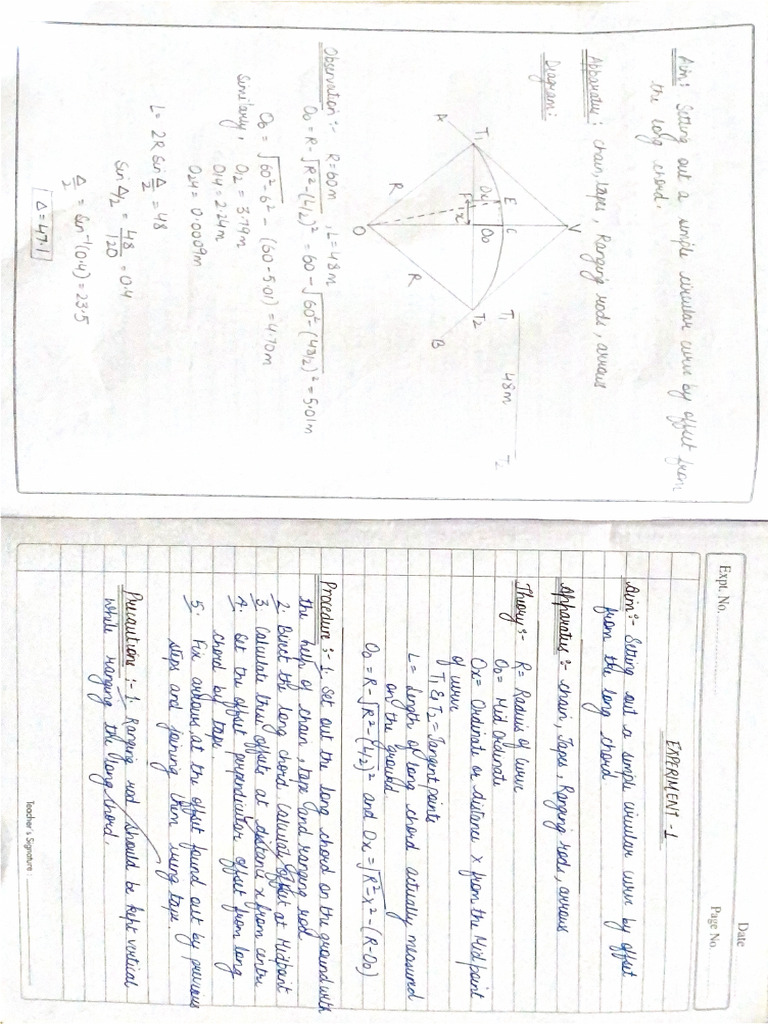 Aim: Setting out a simple circular curve by offset from
the long chord.
Apparatus: chain, tapes, Ranging rods, arrows
Diagram:
V
T1
E
C
T2
A
B
Ox
O0
F
x
R
R
O
T1
48m
T2
Observation:- R=60m, L=48m
O0 = R-√R²-(L/2)² = 60-√60²-(48/2)² = 5.01m
O6 = √60²-6² - (60-5.01) = 4.70m
Similarly, O12 = 3.79m
O14 = 2.24m
O24 = 0.0009m
L = 2R sin Δ/2 = 48
sin Δ/2 = 48/120 = 0.4
Δ/2 = sin⁻¹(0.4) = 23.5
Δ = 47.1
Expt. No.
Date
Page No.
EXPERIMENT-1
Aim:- Setting out a simple circular curve by offset
from the long chord
Apparatus:- chain, Tapes, Ranging rods, arrows
Theory:- R= Radius of curve
O0= Mid Ordinate
Ox= Ordinate or distance x from the Mid point
of curve
T1 & T2= Tangent points
L= length of long chord actually measured
on the ground.
O0= R-√R²-(L/2)² and Ox=√R²-x² -(R-O0)
Procedure:- 1. Set out the long chord on the ground with
the help of chain, tape and ranging rod
2. Bisect the long chord Calculate offset at Midpoint
3. Calculate thus offsets at distance x from centre
4. Set the offset perpendicular offset from long
chord by tape.
5. Fix arrows at the offset found out by previous
steps and joining them using tape.
Precaution:- 1. Ranging rod should be kept vertical
while ranging the long chord.
Teacher's Signature: